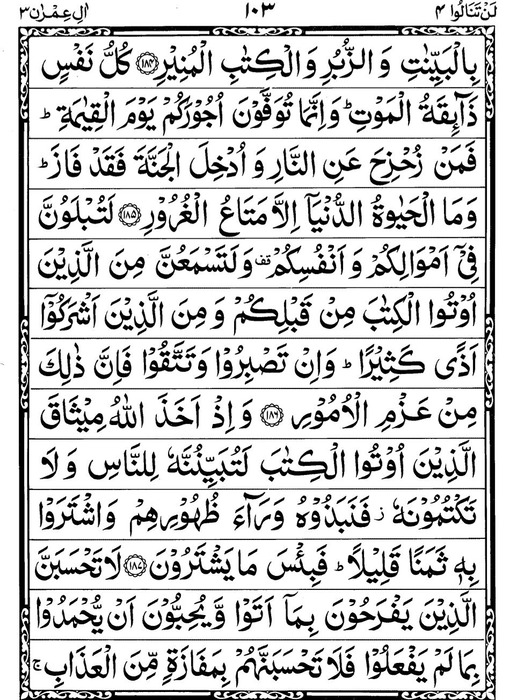 لَنْ تَنَالُوا ٤ ١٠٣ اٰلِ عِمْرٰن ٣
بِالْبَيِّنٰتِ وَ الزُّبُرِ وَ الْكِتٰبِ الْمُنِيْرِ ﴿۱۸۴﴾ كُلُّ نَفْسٍ
ذَآئِقَةُ الْمَوْتِ ؕ وَ اِنَّمَا تُوَفَّوْنَ اُجُوْرَكُمْ يَوْمَ الْقِيٰمَةِ ؕ
فَمَنْ زُحْزِحَ عَنِ النَّارِ وَ اُدْخِلَ الْجَنَّةَ فَقَدْ فَازَ ؕ
وَ مَا الْحَيٰوةُ الدُّنْيَاۤ اِلَّا مَتَاعُ الْغُرُوْرِ ﴿۱۸۵﴾ لَتُبْلَوُنَّ
فِىْۤ اَمْوَالِكُمْ وَ اَنْفُسِكُمْ قف وَ لَتَسْمَعُنَّ مِنَ الَّذِيْنَ
اُوْتُوا الْكِتٰبَ مِنْ قَبْلِكُمْ وَ مِنَ الَّذِيْنَ اَشْرَكُوْۤا
اَذًى كَثِيْرًا ؕ وَ اِنْ تَصْبِرُوْا وَ تَتَّقُوْا فَاِنَّ ذٰلِكَ
مِنْ عَزْمِ الْاُمُوْرِ ﴿۱۸۶﴾ وَ اِذْ اَخَذَ اللّٰهُ مِيْثَاقَ
الَّذِيْنَ اُوْتُوا الْكِتٰبَ لَتُبَيِّنُنَّهٗ لِلنَّاسِ وَ لَا
تَكْتُمُوْنَهٗ ز فَنَبَذُوْهُ وَرَآءَ ظُهُوْرِهِمْ وَ اشْتَرَوْا
بِهٖ ثَمَنًا قَلِيْلًا ؕ فَبِئْسَ مَا يَشْتَرُوْنَ ﴿۱۸۷﴾ لَا تَحْسَبَنَّ
الَّذِيْنَ يَفْرَحُوْنَ بِمَاۤ اَتَوْا وَّ يُحِبُّوْنَ اَنْ يُّحْمَدُوْا
بِمَا لَمْ يَفْعَلُوْا فَلَا تَحْسَبَنَّهُمْ بِمَفَازَةٍ مِّنَ الْعَذَابِ ۚ